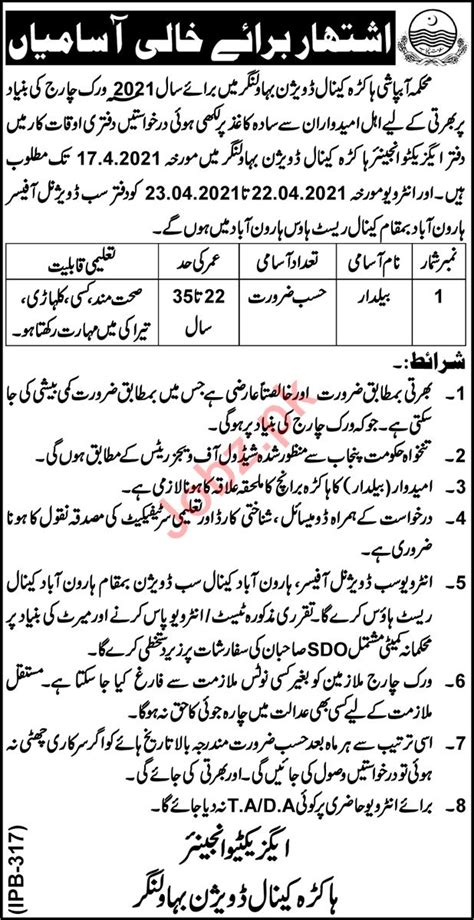 اشتہار برائے خالی آسامیاں
محکمہ آبپاشی ہاکڑہ کینال ڈویژن بہاولنگر میں برائے سال 2021 ورک چارج کی بنیاد
پر بھرتی کے لیے اہل امیدواران سے سادہ کاغذ پر لکھی ہوئی درخواستیں دفتری اوقات کار میں
دفتر ایگزیکٹو انجینئر ہاکڑہ کینال ڈویژن بہاولنگر میں مورخہ 17.4.2021 تک مطلوب
ہیں۔ اور انٹرویو مورخہ 22.04.2021 تا 23.04.2021 کو دفتر سب ڈویژنل آفیسر
ہارون آباد بمقام کینال ریسٹ ہاوس ہارون آباد میں ہوں گے۔
نمبر شمار نام آسامی تعداد آسامی عمر کی حد تعلیمی قابلیت
1 بیلدار حسب ضرورت 22 تا 35 صحت مند، کسی، کلہاڑی،
سال تیراکی میں مہارت رکھتا ہو۔
شرائط:۔
1۔ بھرتی بمطابق ضرورت اور خالصتاً عارضی ہے جس میں بمطابق ضرورت کمی بیشی کی جا
سکتی ہے۔ جو کہ ورک چارج کی بنیاد پر ہوگی۔
2۔ تنخواہ حکومت پنجاب سے منظور شدہ شیڈول آف ویجز ریٹس کے مطابق ہوں گے۔
3۔ امیدوار (بیلدار) کا ہاکڑہ برانچ کا ملحقہ علاقہ کا ہونا لازمی ہے۔
4۔ درخواست کے ہمراہ ڈومیسائل، شناختی کارڈ اور تعلیمی سرٹیفکیٹ کی مصدقہ نقول کا ہونا
ضروری ہے۔
5۔ انٹرویو سب ڈویژنل آفیسر، ہارون آباد کینال سب ڈویژن بمقام ہارون آباد کینال
ریسٹ ہاؤس کرے گا۔ تقرری مذکورہ ٹیسٹ/انٹرویو پاس کرنے اور میرٹ کی بنیاد پر
محکمانہ کمیٹی مشتمل SDO صاحبان کی سفارشات پر زیر دستخطی کرے گا۔
6۔ ورک چارج ملازمین کو بغیر کسی نوٹس ملازمت سے فارغ کیا جا سکتا ہے۔ مستقل
ملازمت کے لیے کسی بھی عدالت میں چارہ جوئی کا حق نہ ہوگا۔
7۔ اسی ترتیب سے ہر ماہ بعد حسب ضرورت مندرجہ بالا تاریخ ہائے کو اگر سرکاری چھٹی نہ
ہوئی تو درخواستیں وصول کی جائیں گی۔ اور بھرتی کی جائے گی۔
8۔ برائے انٹرویو حاضری پر کوئی T.A/D.A نہ دیا جائے گا۔
ایگزیکٹو انجینئر
ہاکڑہ کینال ڈویژن بہاولنگر
(IPB-317)
Jobz.pk